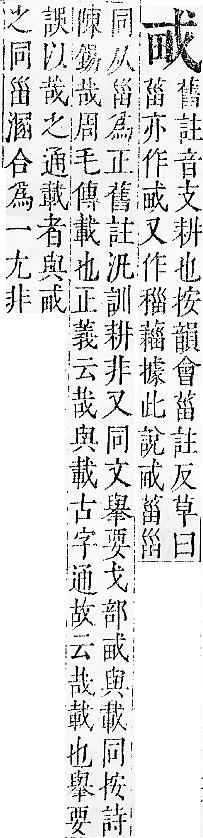 舊註音文耕也按韻會菑註反草曰
菑亦作又作據此說菑甾
同从甾為正舊註汎訓耕非又同文舉要戈部與載同按詩
陳錫哉周毛傳載也正義云哉與載古字通故云哉載也舉要
誤以哉之通載者與
之同甾溷合為一尤非